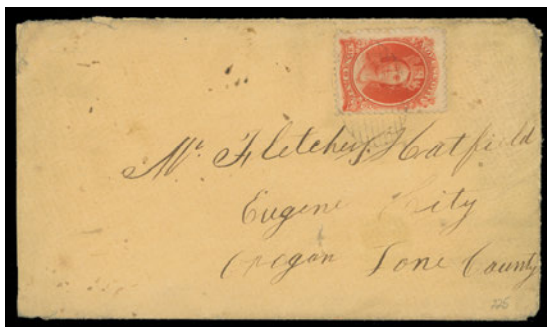 CENTS
Mr Fletcher Hatfield
Eugene City
Oregon Lone County
225